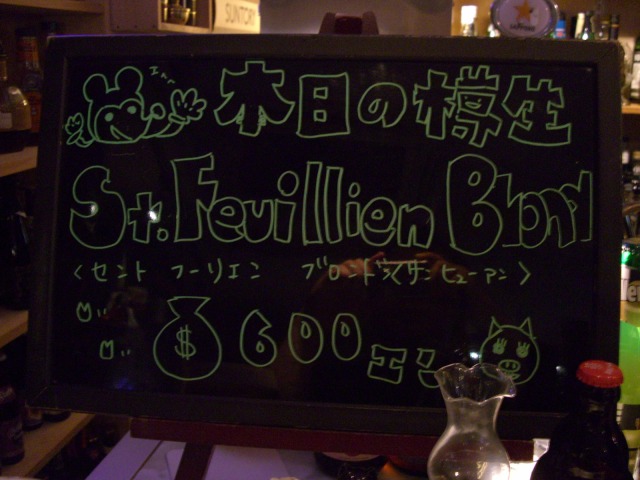 SUNTORY
本日の樽生
St. Feuillien Blond
〈セント フーリエン ブロンド
サンヒューアン〉
$ 600エン